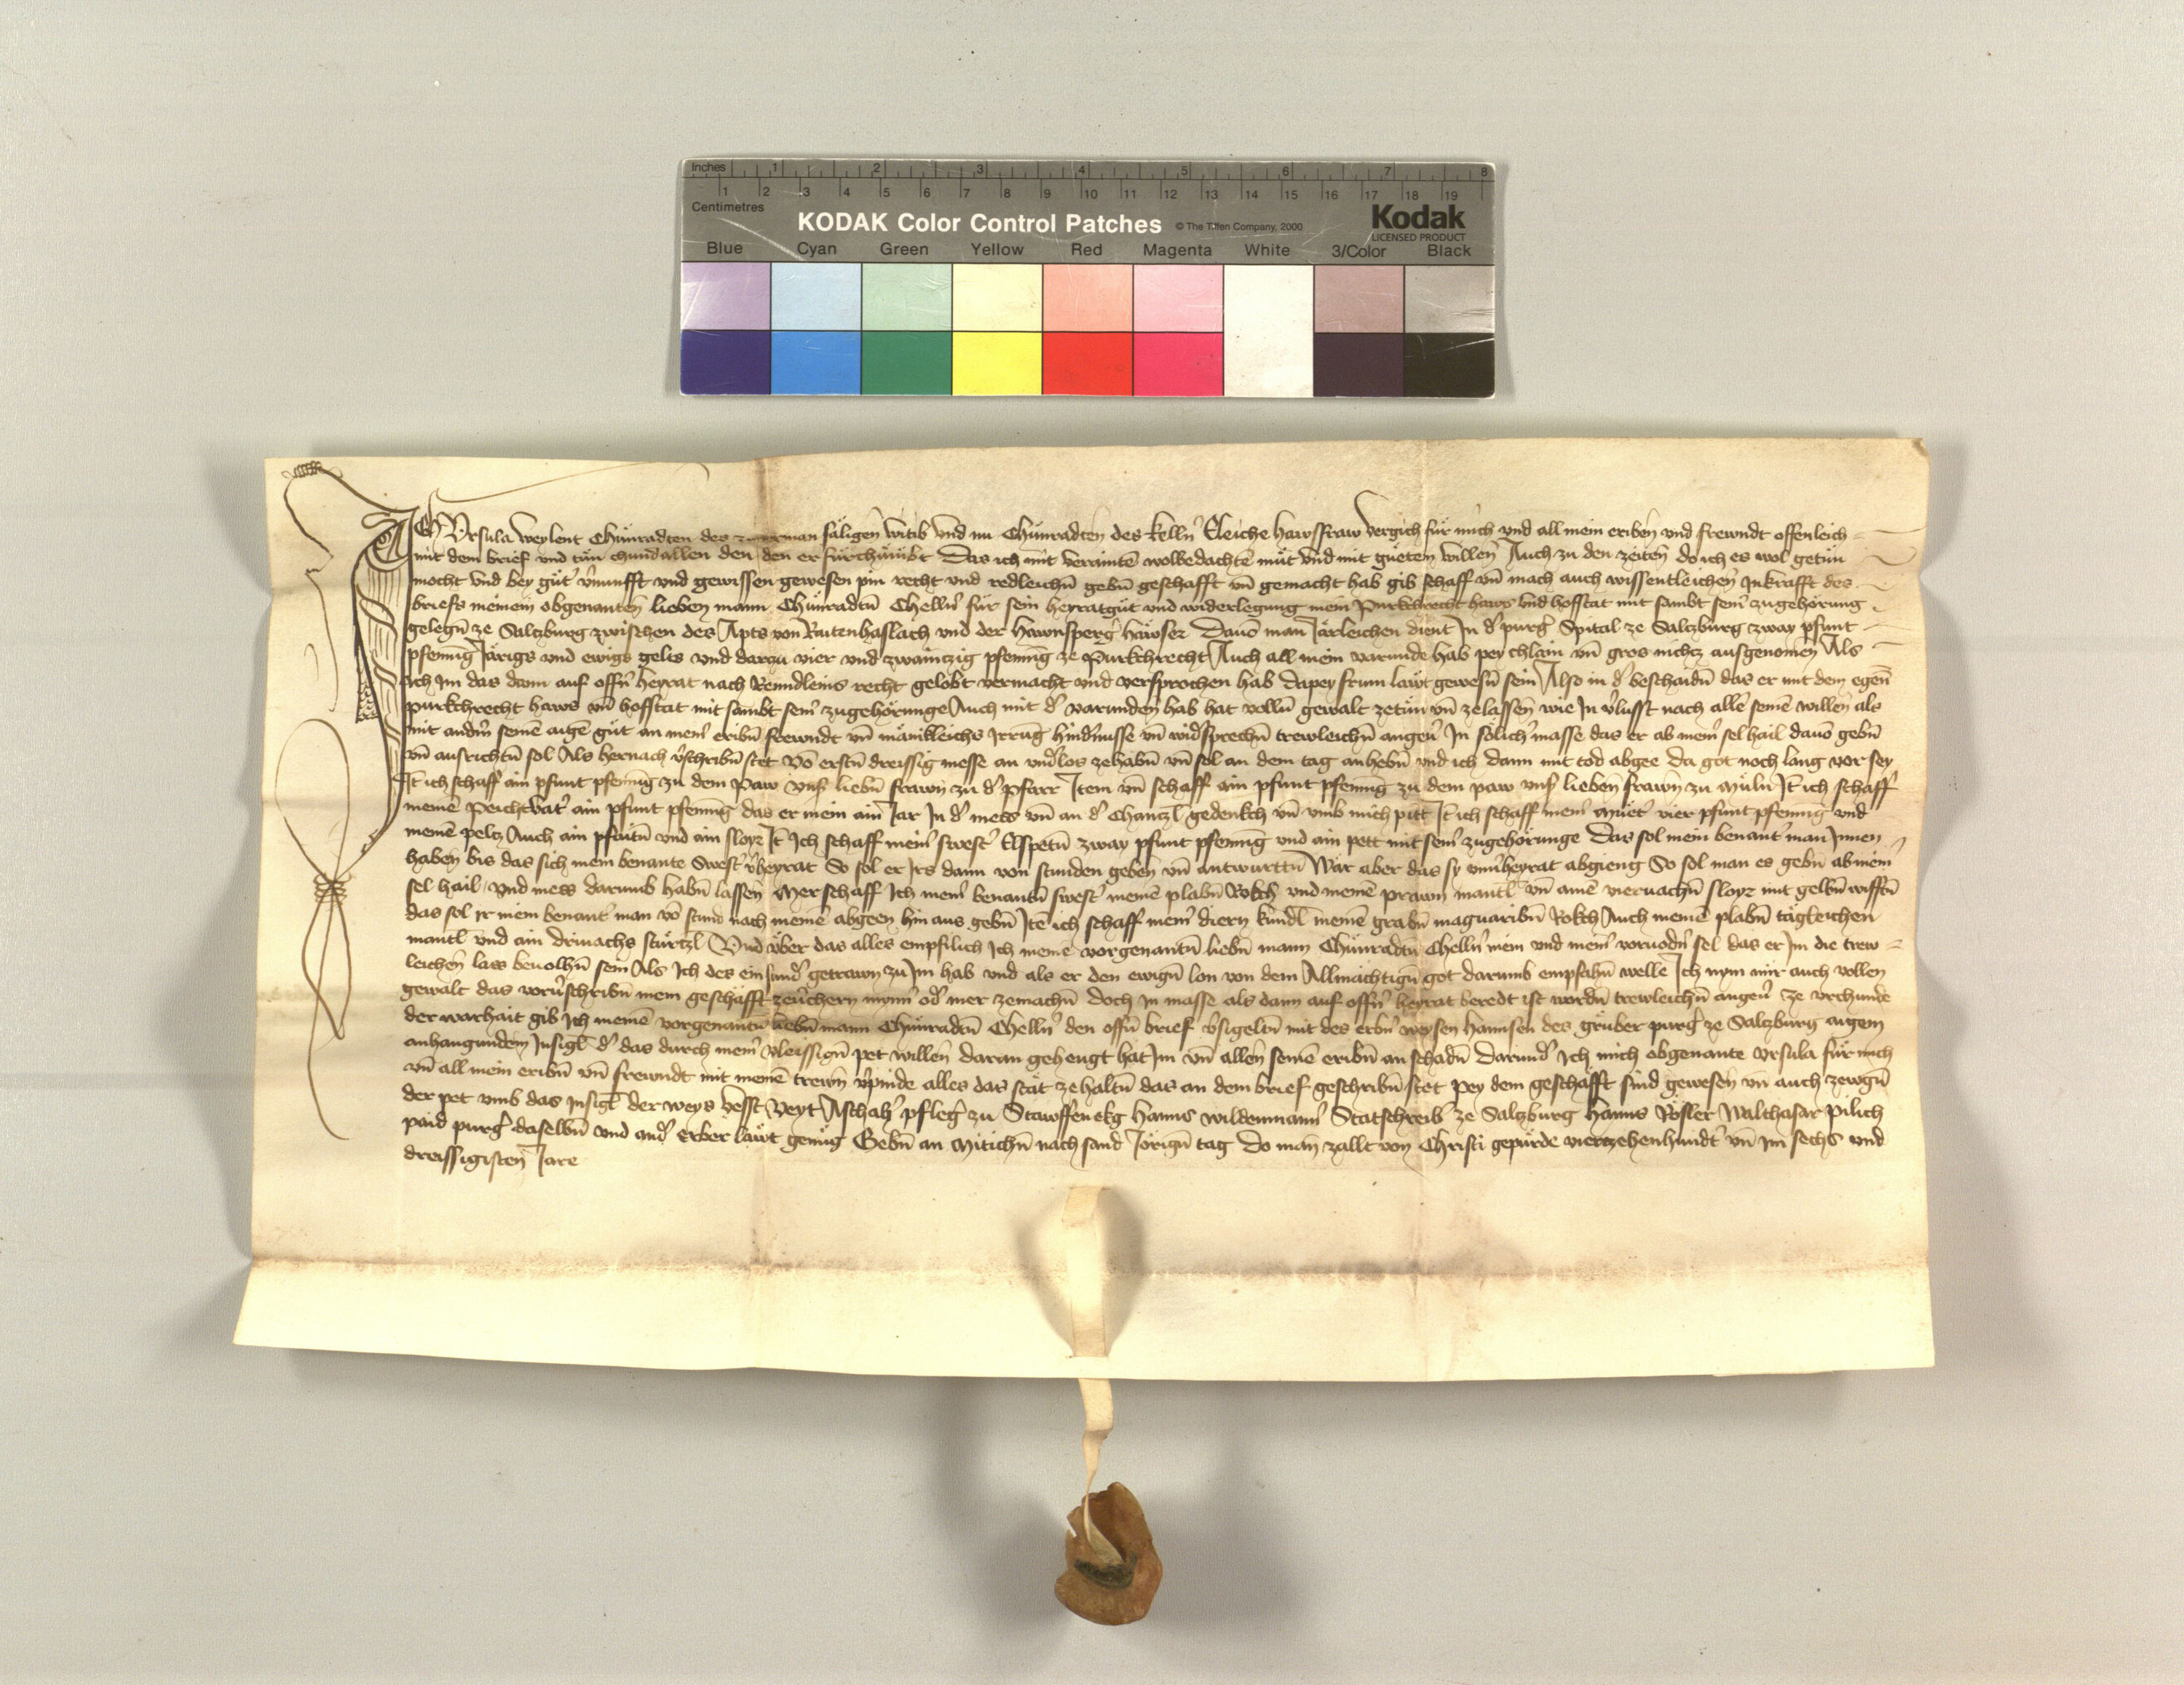 Inches 1 2 3 4 5 6 7 8
1 2 3 4 5 6 7 8 9 10 11 12 13 14 15 16 17 18 19
Centimetres
KODAK Color Control Patches © The Tiffen Company, 2000 Kodak
LICENSED PRODUCT
Blue Cyan Green Yellow Red Magenta White 3/Color Black
ICh Vrsula weylent Chunradten des säligen witib vnd nu Chunradten des kelln̄ Eleiche hawsfraw vergich für mich vnd all mein eriben vnd frewndt offenleich
mit dem brief vnd tun chund allen den den er fürchumbt Das ich mit veraintē wolbedachtē mut vnd mit guetem willen Auch zu den zeiten do ich es wol getun
mocht vnd bey gut' v'nunfft vnd gewissen gewesen pin recht vnd redleichn̄ gebn̄ geschafft vn̄ gemacht hab gib schaff vn̄ mach auch wissentleichen Inkrafft des
briefs meinem obgenanten lieben mann Chunradtn̄ Chelln̄ für sein heyratgut vnd widerlegung mein Purkchrecht haws vnd hofstat mit sambt sein' zugehörung
gelegn̄ ze Salzburg zwischen des Apts von Raitenhaslach vnd der hawnsperg' häwser Dauō man Järleichen dient In d' purg' Spital ze Salzburg zway pfunt
pfennig Järigs vnd ewigs gelts vnd darzu vier vnd zwaintzig pfennig ze Purkchrecht Auch all mein varunde hab pey chlain vn̄ gros nichtz ausgenomen Als
ich Im das dann auf offn̄ heyrat nach Renndleins recht gelobt vermacht vnd versprochen hab dapey frum läwt gewesn̄ sein Also in d' beschaidn̄ das er mit dem egen̄
purkchrecht haws vn̄ hofstat mit sambt sein' zugehörunge Auch mit d' varunden hab hat volln̄ gewalt zetun vn̄ zelassen wie In v'lusst nach allē seinē willen als
mit andm̄ seinē aigē gut an mein' eribn̄ frewndt vn̄ mänikleichs Irrūg hind'nusse vn̄ wid'sprechn̄ trewleichn̄ angeu' In sölich' masse das er ab mein' sel hail dauō gebn̄
vn̄ ausrichtn̄ sol Als hernach v'schribn̄ stet Vō erstn̄ dreissig messe an vnd'los zehabn̄ vn̄ sol an dem tag anhebn̄ vnd ich dann mit tod abgee da got noch lang vor sey
It ich schaff ain pfunt pfennig zu dem Paw vns' liebn̄ frawn zu d' Pfarr Item vn̄ schaff ain pfunt pfennig zu dem paw vns' lieben frawn zu Müln It ich schaff
meinē Peichtvat' ain pfunt pfennig das er mein ain Jar In d' mess vn̄ an d' Chanzl gedenkch vn̄ vmb mich pitt It ich schaff mein' muet' vier pfunt pfennig vnd
meinē peltz Auch ain pfaitn̄ vnd ain sloyr It Ich schaff mein' swest' Elspetn̄ zway pfunt pfennig vnd ain pett mit sein' zugehörunge Das sol mein benant' man Innen
haben bis das sich mein benante Swest' v'heyrat So sol er Irs dann von stunden geben vn̄ antwurttn̄ Wär aber das sy vnu'heyrat abgieng So sol man es gebn̄ ab mein'
sel hail vnd mess darumb habn̄ lassen Mer schaff Ich mein' benantn̄ swest' meinē plabn̄ Rokch vnd meinē prawn mantl vn̄ ainē vieruachn̄ sloyr mit gelbn̄ wifftn̄
das sol ir mein benant' man vō stund nach meinē abgeen hin aus gebn̄ Itē ich schaff mein' diern kundl meinē grabn̄ maguaribn̄ Rokch Auch meinē plabn̄ tägleichen
mantl vnd ain driuachs stürtzl Vnd über das alles empfilich Ich meinē vorgenantn̄ liebn̄ mann Chunradtn̄ Chelln̄ mein vnd mein' voruodn̄ sel das er Im die trew
leichen lass beuolhn̄ sein Als Ich des ein sund' getrawn zu Im hab vnd als er den ewign̄ lon von dem Allmächtign̄ got darumb empfahn̄ welle Ich nym mir auch vollen
gewalt das voru'schribn̄ mein geschäfft zeu'chern mynn' od' mer zemachn̄ doch In masse als dann auf offn̄ heyrat beredt ist wordn̄ trewleichn̄ angeu' Ze vrchunde
der warhait gib Ich meinē vorgenantn̄ liebn̄ mann Chunradtn̄ Chelln̄ den offn̄ brief v'sigeltn̄ mit des erbn̄ weysen Hannsen des gruber purg' ze Salzburg aigem
anhangundem Insigl d' das durch mein' vleissign̄ pet willen daran gehengt hat Im vn̄ allen seinē eribn̄ an schadn̄ Darund' Ich mich obgenante Vrsula für mich
vn̄ all mein eribn̄ vn̄ frewndt mit meinē trewn v'pinde alles das stät ze haltn̄ das an dem brief geschribn̄ stet Pey dem geschäfft sind gewesen vn̄ auch zewgn̄
der pet vmb das Insigl der weys vesst Veyt Aschah' pfleg' zu Stawffenekg Hanns wildenmann' Statschreib' ze Salzburg Hanns Rösler Walthasar pilich
paid purg' daselbn̄ vnd and' erber läwt genug Gebn̄ an Mitichn̄ nach sand Jörign̄ tag Do man zallt von Christi gepurde vierzehenhundt' vn̄ Im sechs vnd
dreissigisten Jare